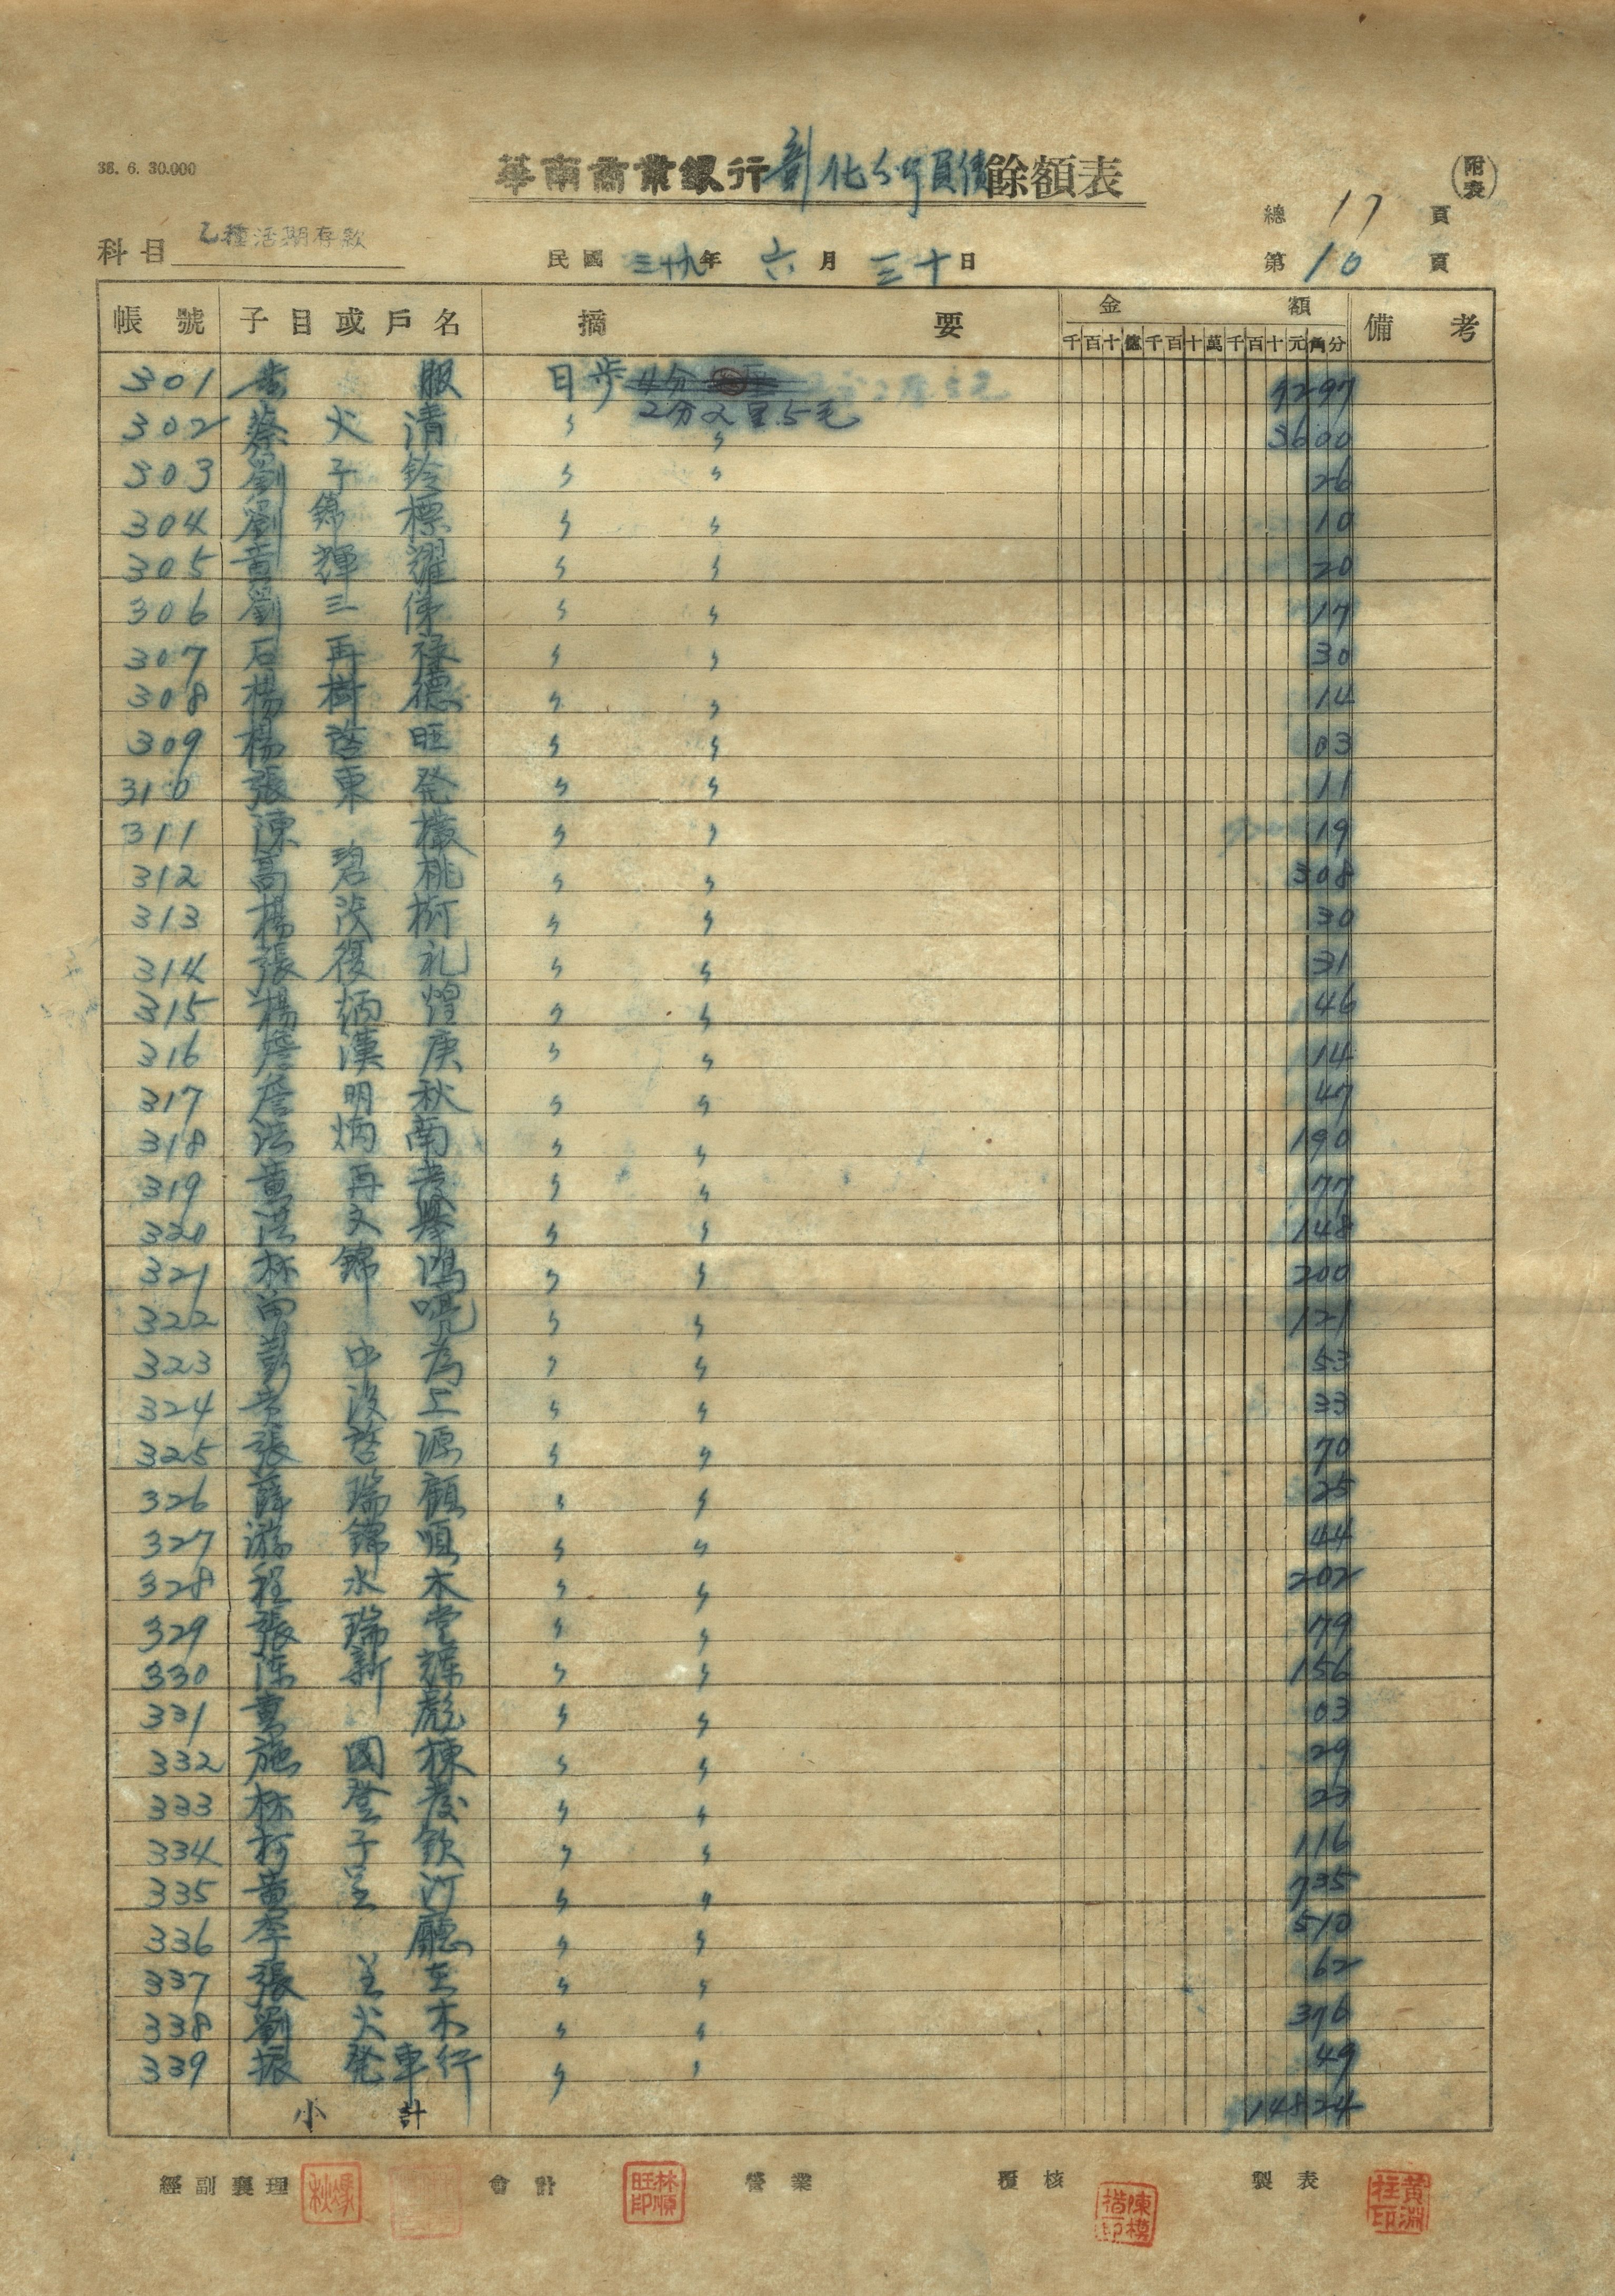 38. 6. 30.000
華南商業銀行彰化分行負債餘額表
(附表)
總 17 頁
科目 乙種活期存款
民國 三十九年 六月 三十日
第 10 頁
帳號 子目或戶名 摘要 金額 備考
千百十億千百十萬千百十元角分
301 服 日步 9297
2分2厘5毛
302 蔡火清 〃 〃 3600
303 劉子鈴 〃 〃 26
304 劉錦標 〃 〃 10
305 黃輝耀 〃 〃 20
306 劉三 〃 〃 17
307 石再祿 〃 〃 30
308 楊樹德 〃 〃 14
309 楊啓旺 〃 〃 03
310 張東発 〃 〃 11
311 陳 〃 〃 19
312 高碧桃 〃 〃 308
313 楊茂 〃 〃 30
314 張復礼 〃 〃 31
315 楊炳煌 〃 〃 46
316 詹漢庚 〃 〃 14
317 詹明秋 〃 〃 47
318 洪炳南 〃 〃 190
319 黃再 〃 〃 77
320 洪文舉 〃 〃 148
321 林錦鴻 〃 〃 200
322 〃 〃 121
323 彭中為 〃 〃 53
324 上 〃 〃 33
325 張啓源 〃 〃 70
326 薛瑞顏 〃 〃 25
327 游錦順 〃 〃 44
328 程水木 〃 〃 202
329 張瑞堂 〃 〃 79
330 陳新輝 〃 〃 156
331 彪 〃 〃 03
332 施國棟 〃 〃 29
333 林登 〃 〃 23
334 柯子欽 〃 〃 116
335 黃呈汀 〃 〃 735
336 李廳 〃 〃 510
337 張 〃 〃 62
338 劉火木 〃 〃 396
339 振発車行 〃 〃 49
小計 14824
經副襄理 會計 營業 覆核 製表
林順旺印
陳模楷印
黃淵柱印